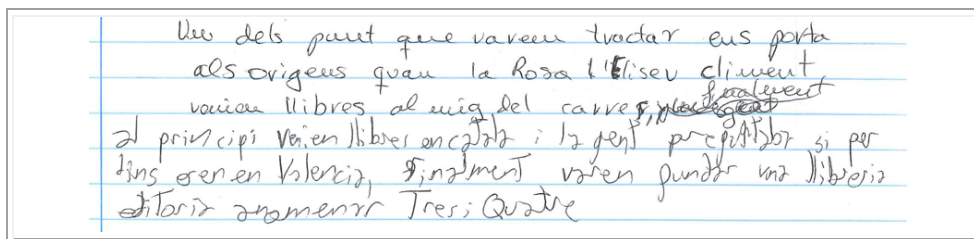 Un dels punt que varem tractar ens porta
als origens quan la Rosa i l'Eliseu climent
venien llibres al mig del carrer,
al principi venien llibres en català i la gent preguntaba si per
dins eren en Valencià, finalment varen fundar una llibreria
editoria anomenar Tres i Quatre